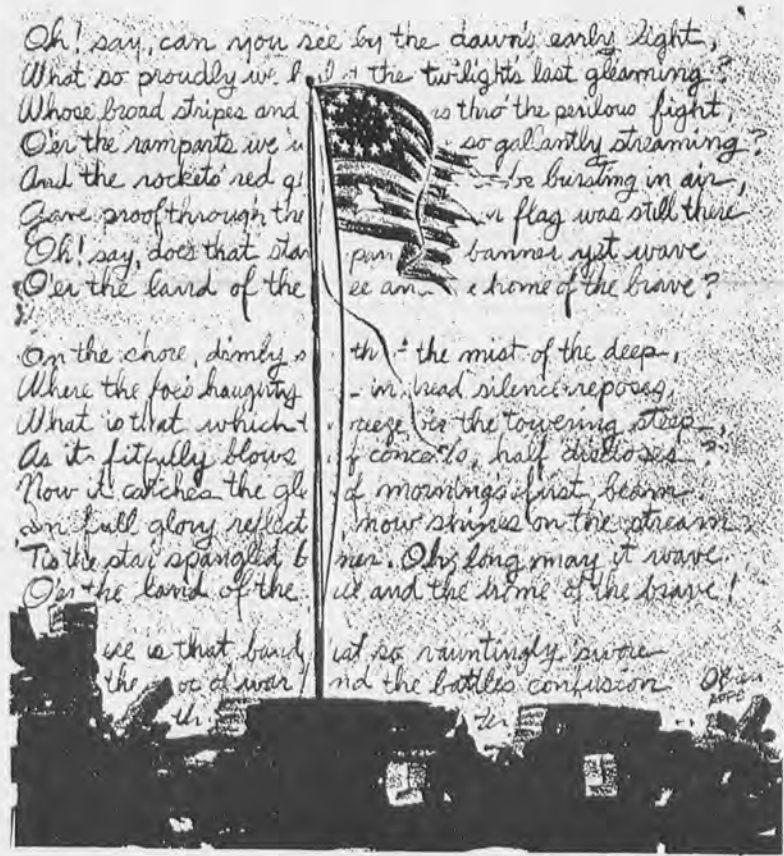 Oh! say, can you see by the dawn's early light,
What so proudly we the twilight's last gleaming?
Whose broad stripes and thro' the perilous fight,
O'er the ramparts we so gallantly streaming?
And the rockets' red bursting in air,
Gave proof through the flag was still there
Oh! say, does that banner yet wave
O'er the land of the home of the brave?
On the shore, dimly the mist of the deep,
Where the foe's haughty in dread silence reposes,
What is that which the towering steep,
As it fitfully blows half discloses?
Now it catches the of morning's first beam
In full glory now shines on the stream
'Tis the star spangled Oh, long may it wave
O'er the land of the and the home of the brave!
is that so vauntingly swore
the of war and the battles confusion